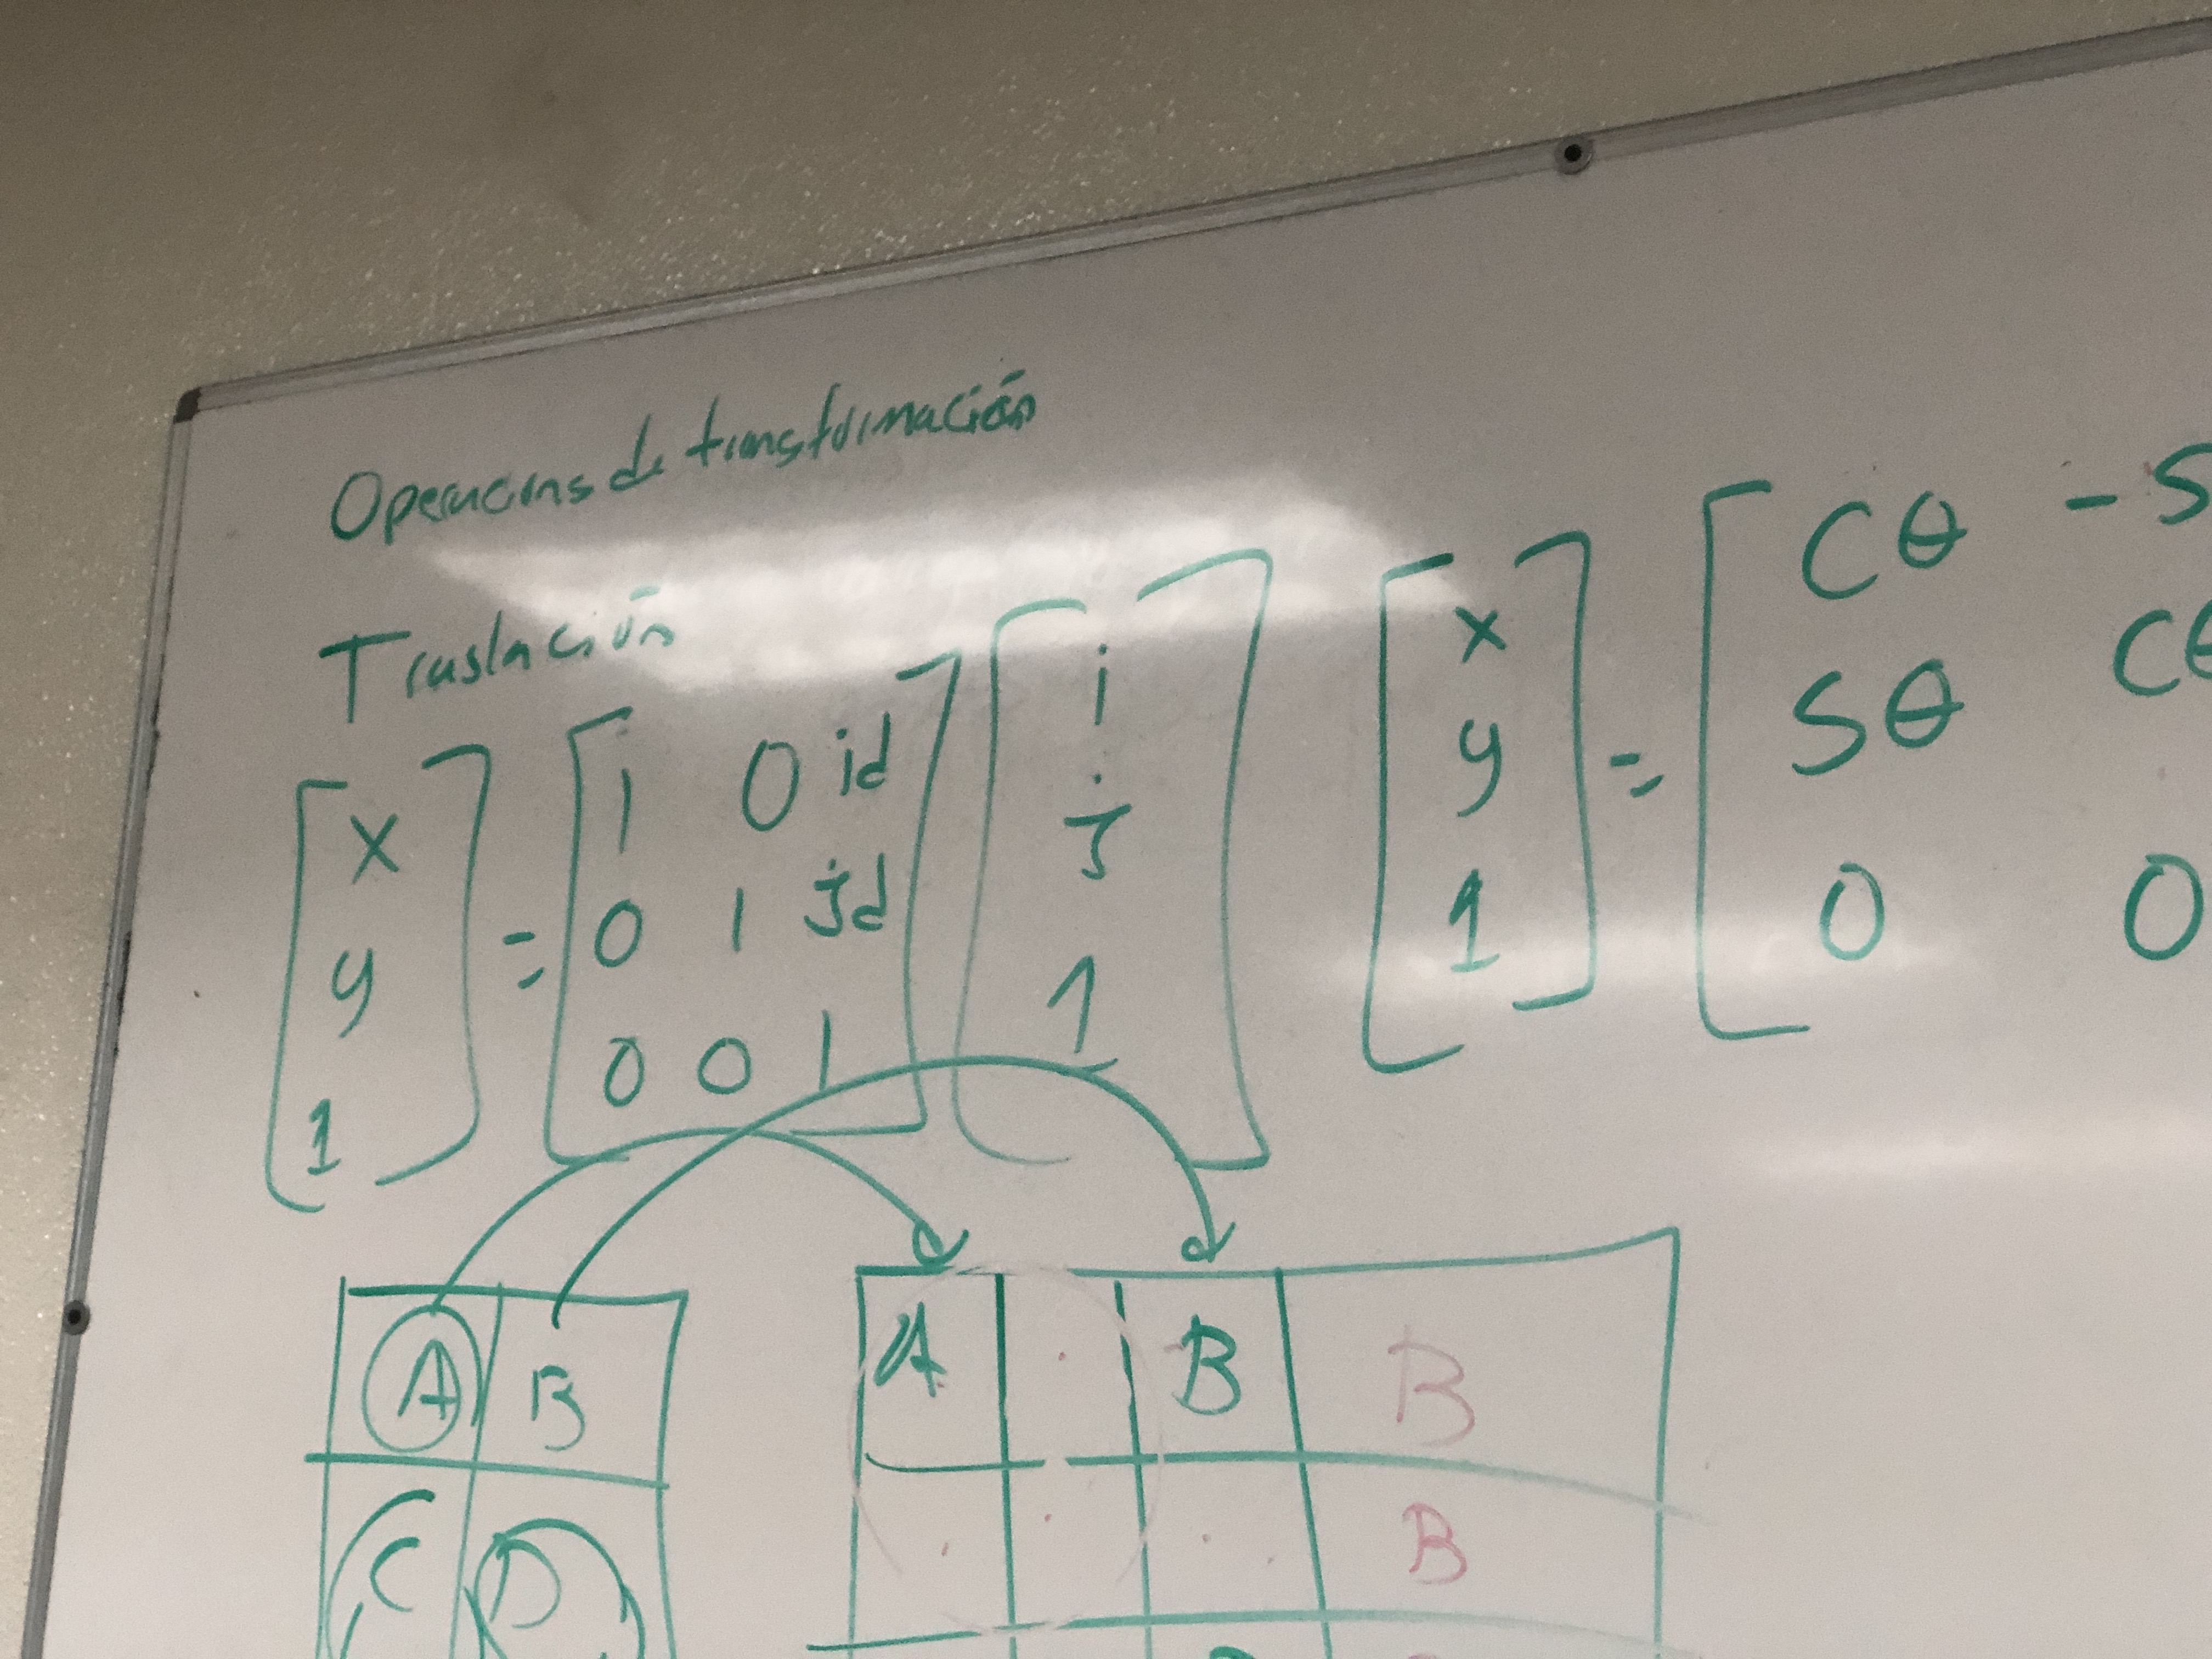 Operaciones de transformación
Traslación
[x] = [1 0 id] [i]
[y] [0 1 jd] [j]
[1] [0 0 1] [1]
[x] = [Cθ -S
[y] [Sθ Cθ
[1] [0 0
A B
C D
A B B
B